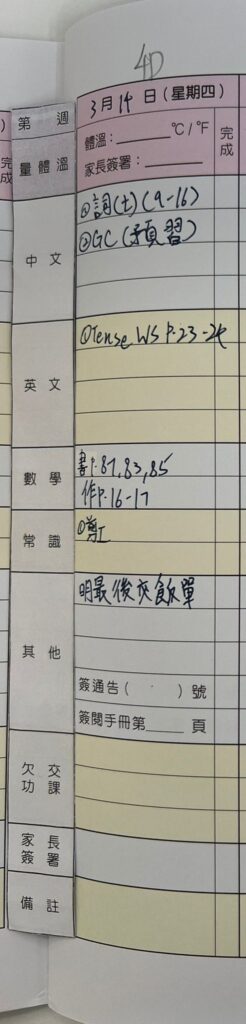 4D
第 週
3月14日(星期四)
量體溫
體溫：______°C/°F
家長簽署：______
完成
中文
①詞(七)(9-16)
②GC(預習)
英文
①Tense WS P.23-24
數學
書P.81,83,85
作P.16-17
常識
①剪工
其他
明最後交飯單
簽通告( )號
簽閱手冊第____頁
欠交功課
家長簽署
備註